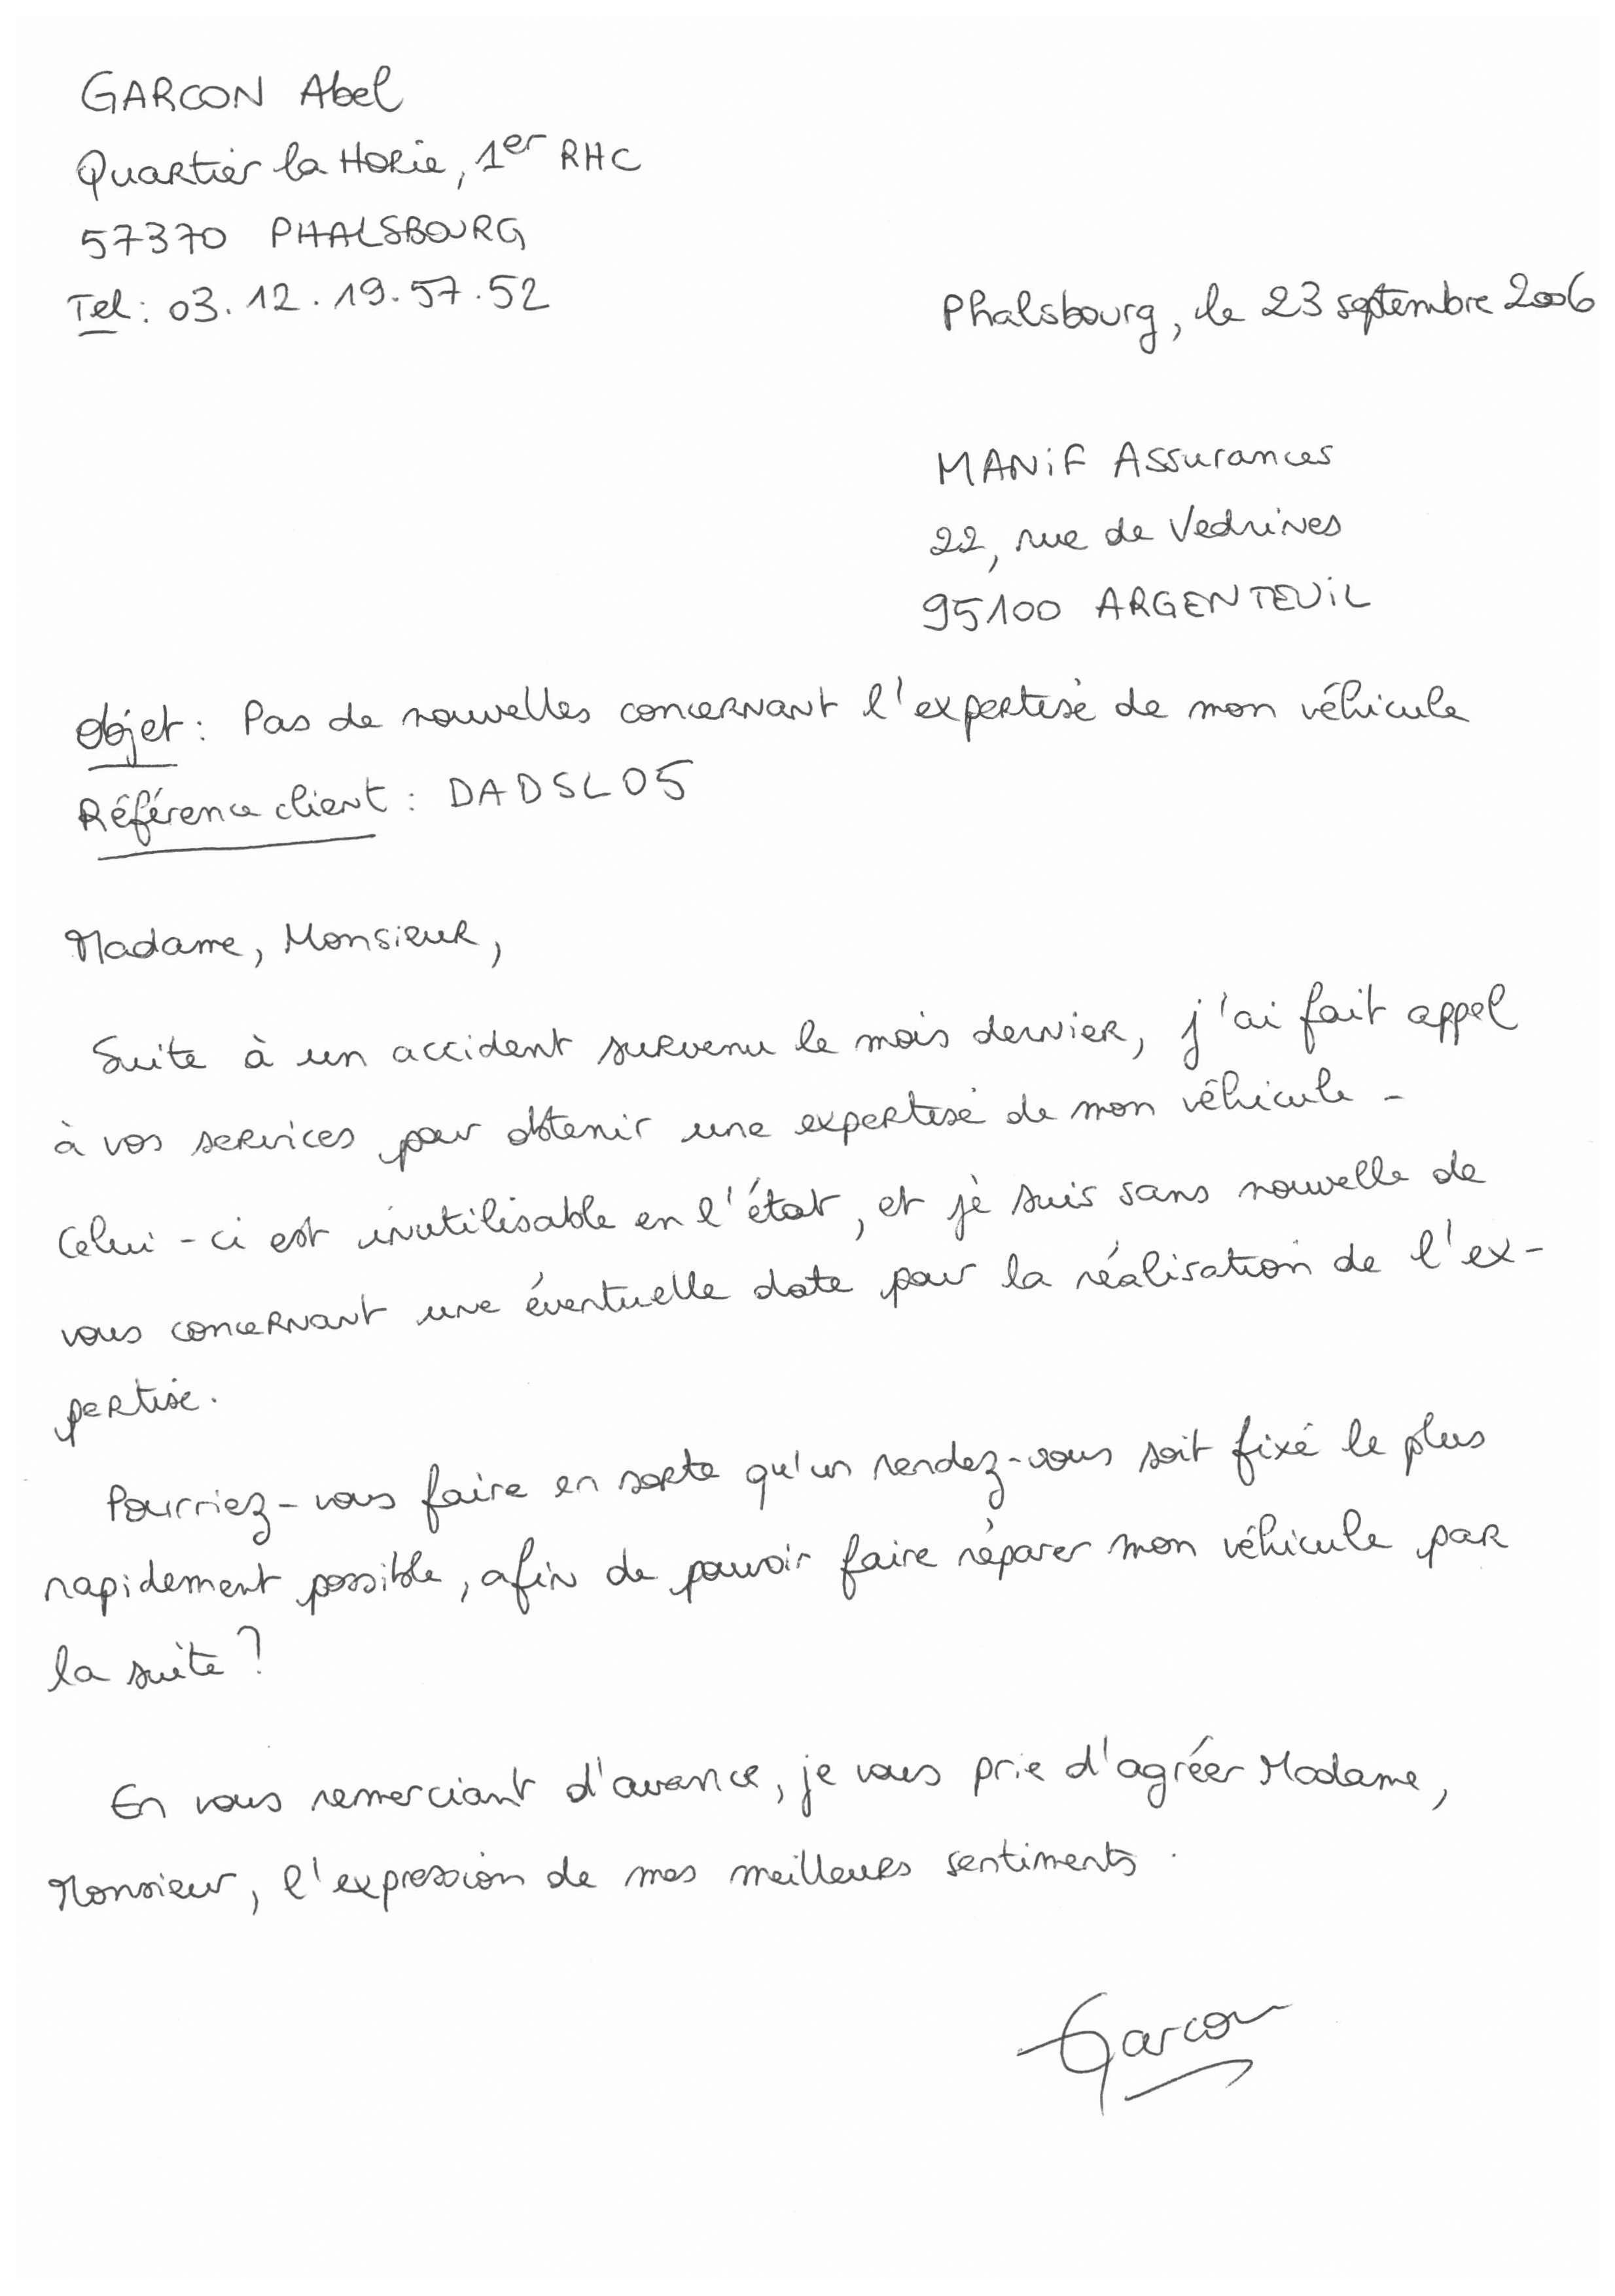 GARCON Abel
Quartier la Horie, 1er RHC
57370 PHALSBOURG
Tel : 03.12.19.57.52
Phalsbourg, le 23 septembre 2006
MANiF Assurances
22, rue de Vedrines
95100 ARGENTEUiL
Objet : Pas de nouvelles concernant l'expertise de mon véhicule
Référence client : DADSL05
Madame, Monsieur,
Suite à un accident survenu le mois dernier, j'ai fait appel
à vos services pour obtenir une expertise de mon véhicule.
Celui-ci est inutilisable en l'état, et je suis sans nouvelle de
vous concernant une éventuelle date pour la réalisation de l'ex-
pertise.
Pourriez-vous faire en sorte qu'un rendez-vous soit fixé le plus
rapidement possible, afin de pouvoir faire réparer mon véhicule par
la suite ?
En vous remerciant d'avance, je vous prie d'agréer Madame,
Monsieur, l'expression de mes meilleurs sentiments.
Garcon